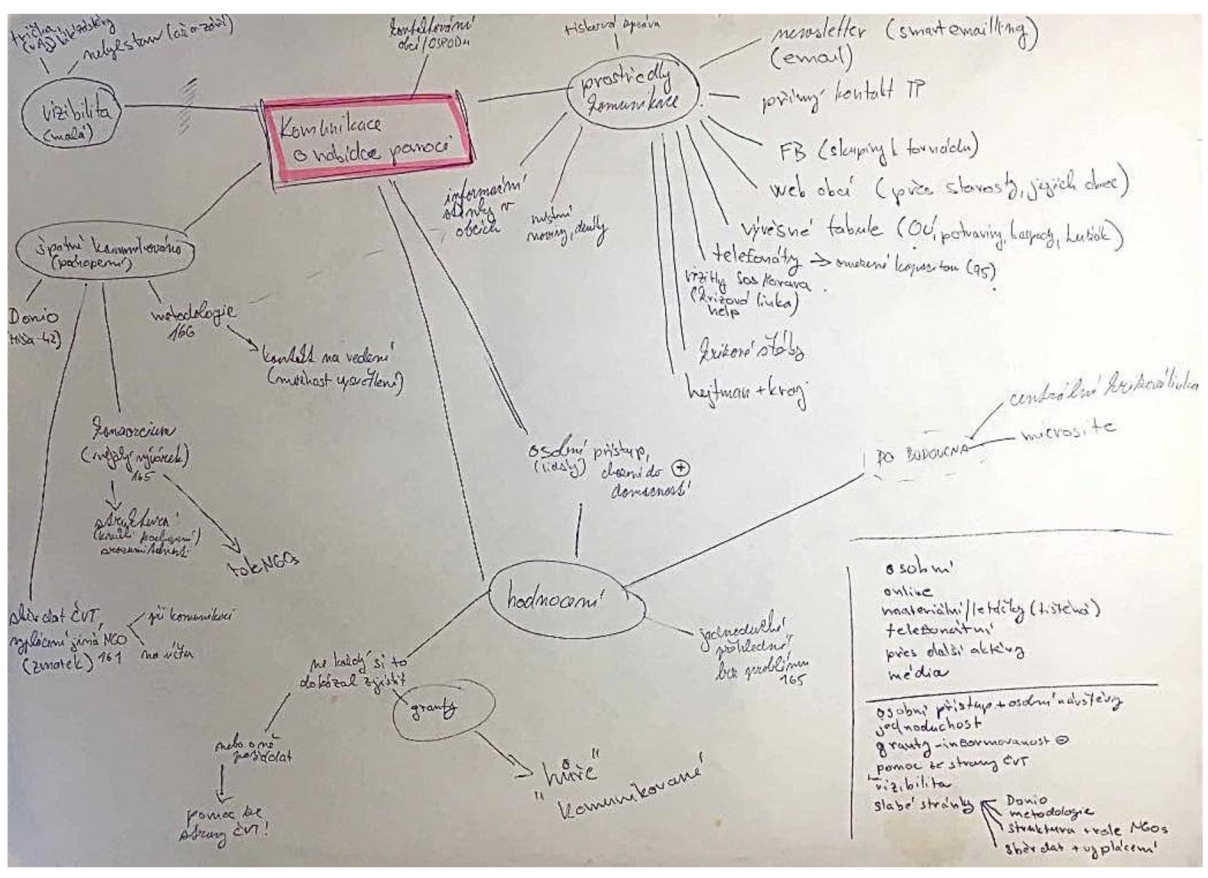 trička,
nebyl stan
vizibilita
(malá)
kontaktování
obcí/OSPODu
Komunikace
o nabídce pomoci
tisková zpráva
prostředky
komunikace
newsletter (smartemailling)
(email)
přímý kontakt TP
FB (skupiny k tornádu)
web obcí (přes starosty, jejich obec)
vývěsné tabule (OÚ, potraviny, hospody, kostel)
telefonáty → omezení kapacitou (95)
vizitky SOS Morava
(krizová linka)
help
krizové štáby
hejtman + kraj
informační
stánky v
obcích
místní
noviny, deníky
špatně komunikováno
(pochopení)
Donio
(Míša-42)
metodologie
166
kontakt na vedení
(možnost vysvětlení)
Konsorcium
(nejaký výdělek)
165
struktura
(kvůli pochopení)
srozumitelnosti
role NGOs
sběr dat ČVT,
vyplácení jiná NGO
(zmatek) 161
při komunikaci
na účtu
osobní přístup,
(lidský) chození do ⊕
domácností
hodnocení
jednoduché
přehledné
bez problému
165
ne každý si to
dokázal zjistit
granty
nebo o ně
požádat
pomoc ze
strany ČVT!
"hůře"
komunikované
DO BUDOUCNA
centrální krizová linka
microsite
osobní
online
materiální/letáčky (tištěná)
telefonátní
přes další aktéry
média
osobní přístup + osobní návštěvy
jednoduchost
granty - informovanost ⊖
pomoc ze strany ČVT
vizibilita
slabé stránky
Donio
metodologie
struktura + role NGOs
sběr dat + vyplácení